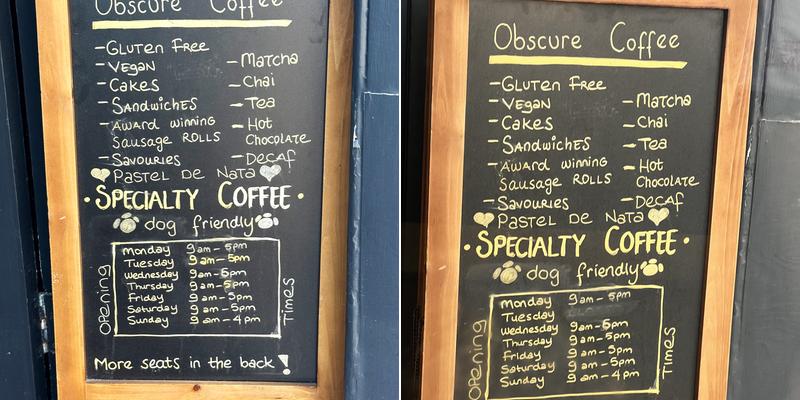 Obscure Coffee
-Gluten Free
-Vegan
-Cakes
-Sandwiches
-Award winning
Sausage Rolls
-Savouries
-Matcha
-Chai
-Tea
-Hot
Chocolate
-Decaf
Pastel de Nata
·Specialty Coffee·
dog friendly
Opening
Monday 9am-5pm
Tuesday 9am-5pm
Wednesday 9am-5pm
Thursday 9am-5pm
Friday 9am-5pm
Saturday 9am-5pm
Sunday 9am-4pm
Times
More seats in the back!
Obscure Coffee
-Gluten Free
-Vegan
-Cakes
-Sandwiches
-Award winning
Sausage Rolls
-Savouries
-Matcha
-Chai
-Tea
-Hot
Chocolate
-Decaf
Pastel de Nata
·Specialty Coffee·
dog friendly
Opening
Monday 9am-5pm
Tuesday
Wednesday 9am-5pm
Thursday 9am-5pm
Friday 9am-5pm
Saturday 9am-5pm
Sunday 9am-4pm
Times